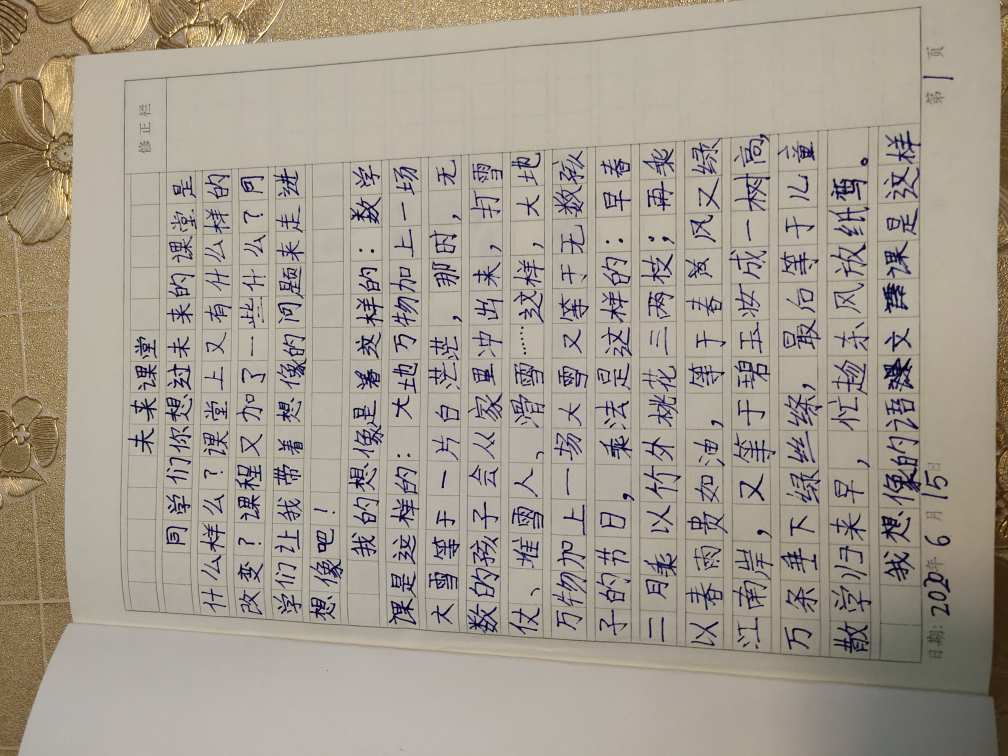 修正栏
未来课堂
同学们你想过未来的课堂是
什么样么？课堂上又有什么样的
改变？课程又加了一些什么？同
学们让我带着想像的问题来走进
想像吧！
我的想像是着这样的：数学
课是这样的：大地万物加上一场
大雪等于一片白茫茫，那时，无
数的孩子会从家里冲出来，打雪
仗、堆雪人、滑雪……这样，大地
万物加上一场大雪又等于无数孩
子的节日，乘法是这样的：早春
二月乘以竹外桃花三两枝；再乘
以春雨贵如油，等于春风又绿
江南岸，又等于碧玉妆成一树高，
万条垂下绿丝绦，最后等于儿童
散学归来早，忙趁东风放纸鸢。
我想像的语文课是这样
日期：2020年6月15日
第1页